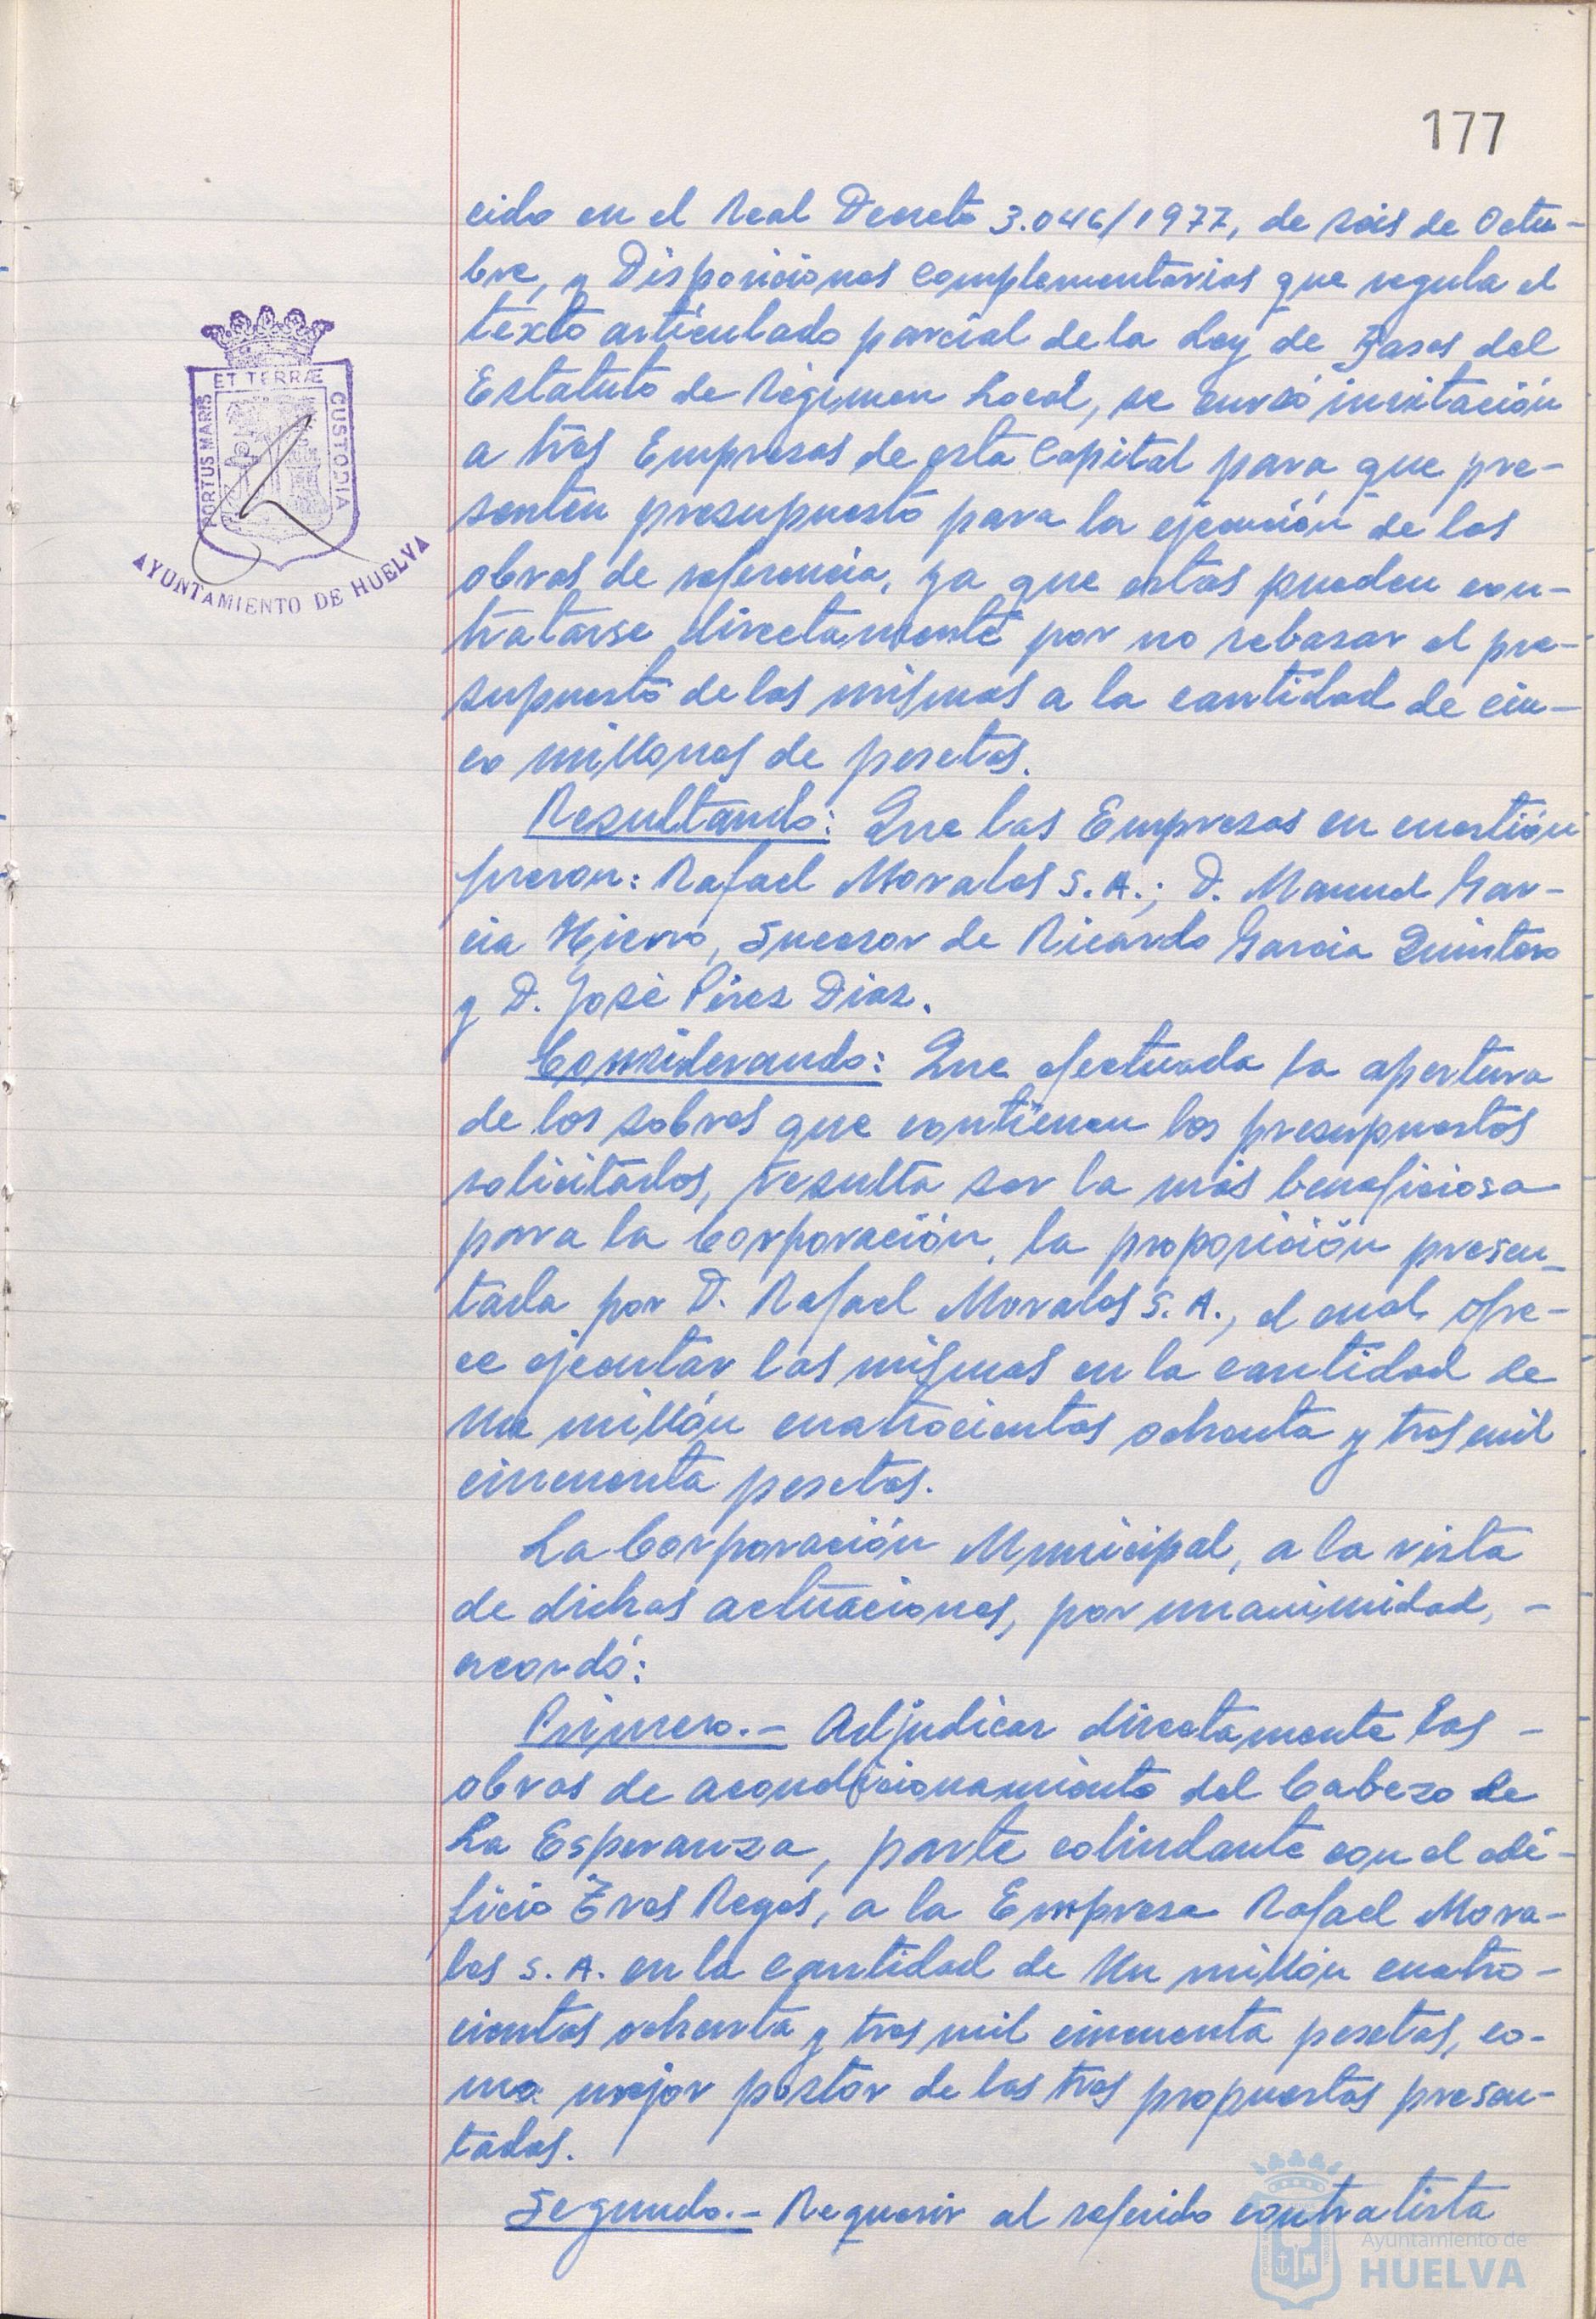 177
cido en el Real Decreto 3.046/1977, de seis de Octu-
bre, y Disposiciones Complementarias que regula el
texto articulado parcial de la Ley de Bases del
Estatuto de Régimen Local, se cursó invitación
a tres Empresas de esta Capital para que pre-
senten presupuesto para la ejecución de las
obras de referencia, ya que estas pueden con-
tratarse directamente por no rebasar el pre-
supuesto de las mismas a la cantidad de cin-
co millones de pesetas.
Resultando: Que las Empresas en cuestión
fueron: Rafael Morales S.A.; D. Manuel Gar-
cia Hierro, Sucesor de Ricardo Garcia Quintero
y D. José Pérez Diaz.
Considerando: Que efectuada la apertura
de los sobres que contienen los presupuestos
solicitados, resulta ser la más beneficiosa
para la Corporación, la proposición presen-
tada por D. Rafael Morales S.A., el cual ofre-
ce ejecutar las mismas en la cantidad de
Un millón cuatrocientas ochenta y tres mil
cincuenta pesetas.
La Corporación Municipal, a la vista
de dichas actuaciones, por unanimidad, -
acordó:
Primero.- Adjudicar directamente las -
obras de acondicionamiento del Cabezo de
La Esperanza, parte colindante con el edi-
ficio Tres Reyes, a la Empresa Rafael Mora-
les S.A. en la cantidad de Un millón cuatro-
cientas ochenta y tres mil cincuenta pesetas, co-
mo mejor postor de las tres propuestas presen-
tadas.
Segundo.- Requerir al referido contratista
PORTUS MARIS
ET TERRÆ
CUSTODIA
AYUNTAMIENTO DE HUELVA
Ayuntamiento de
HUELVA